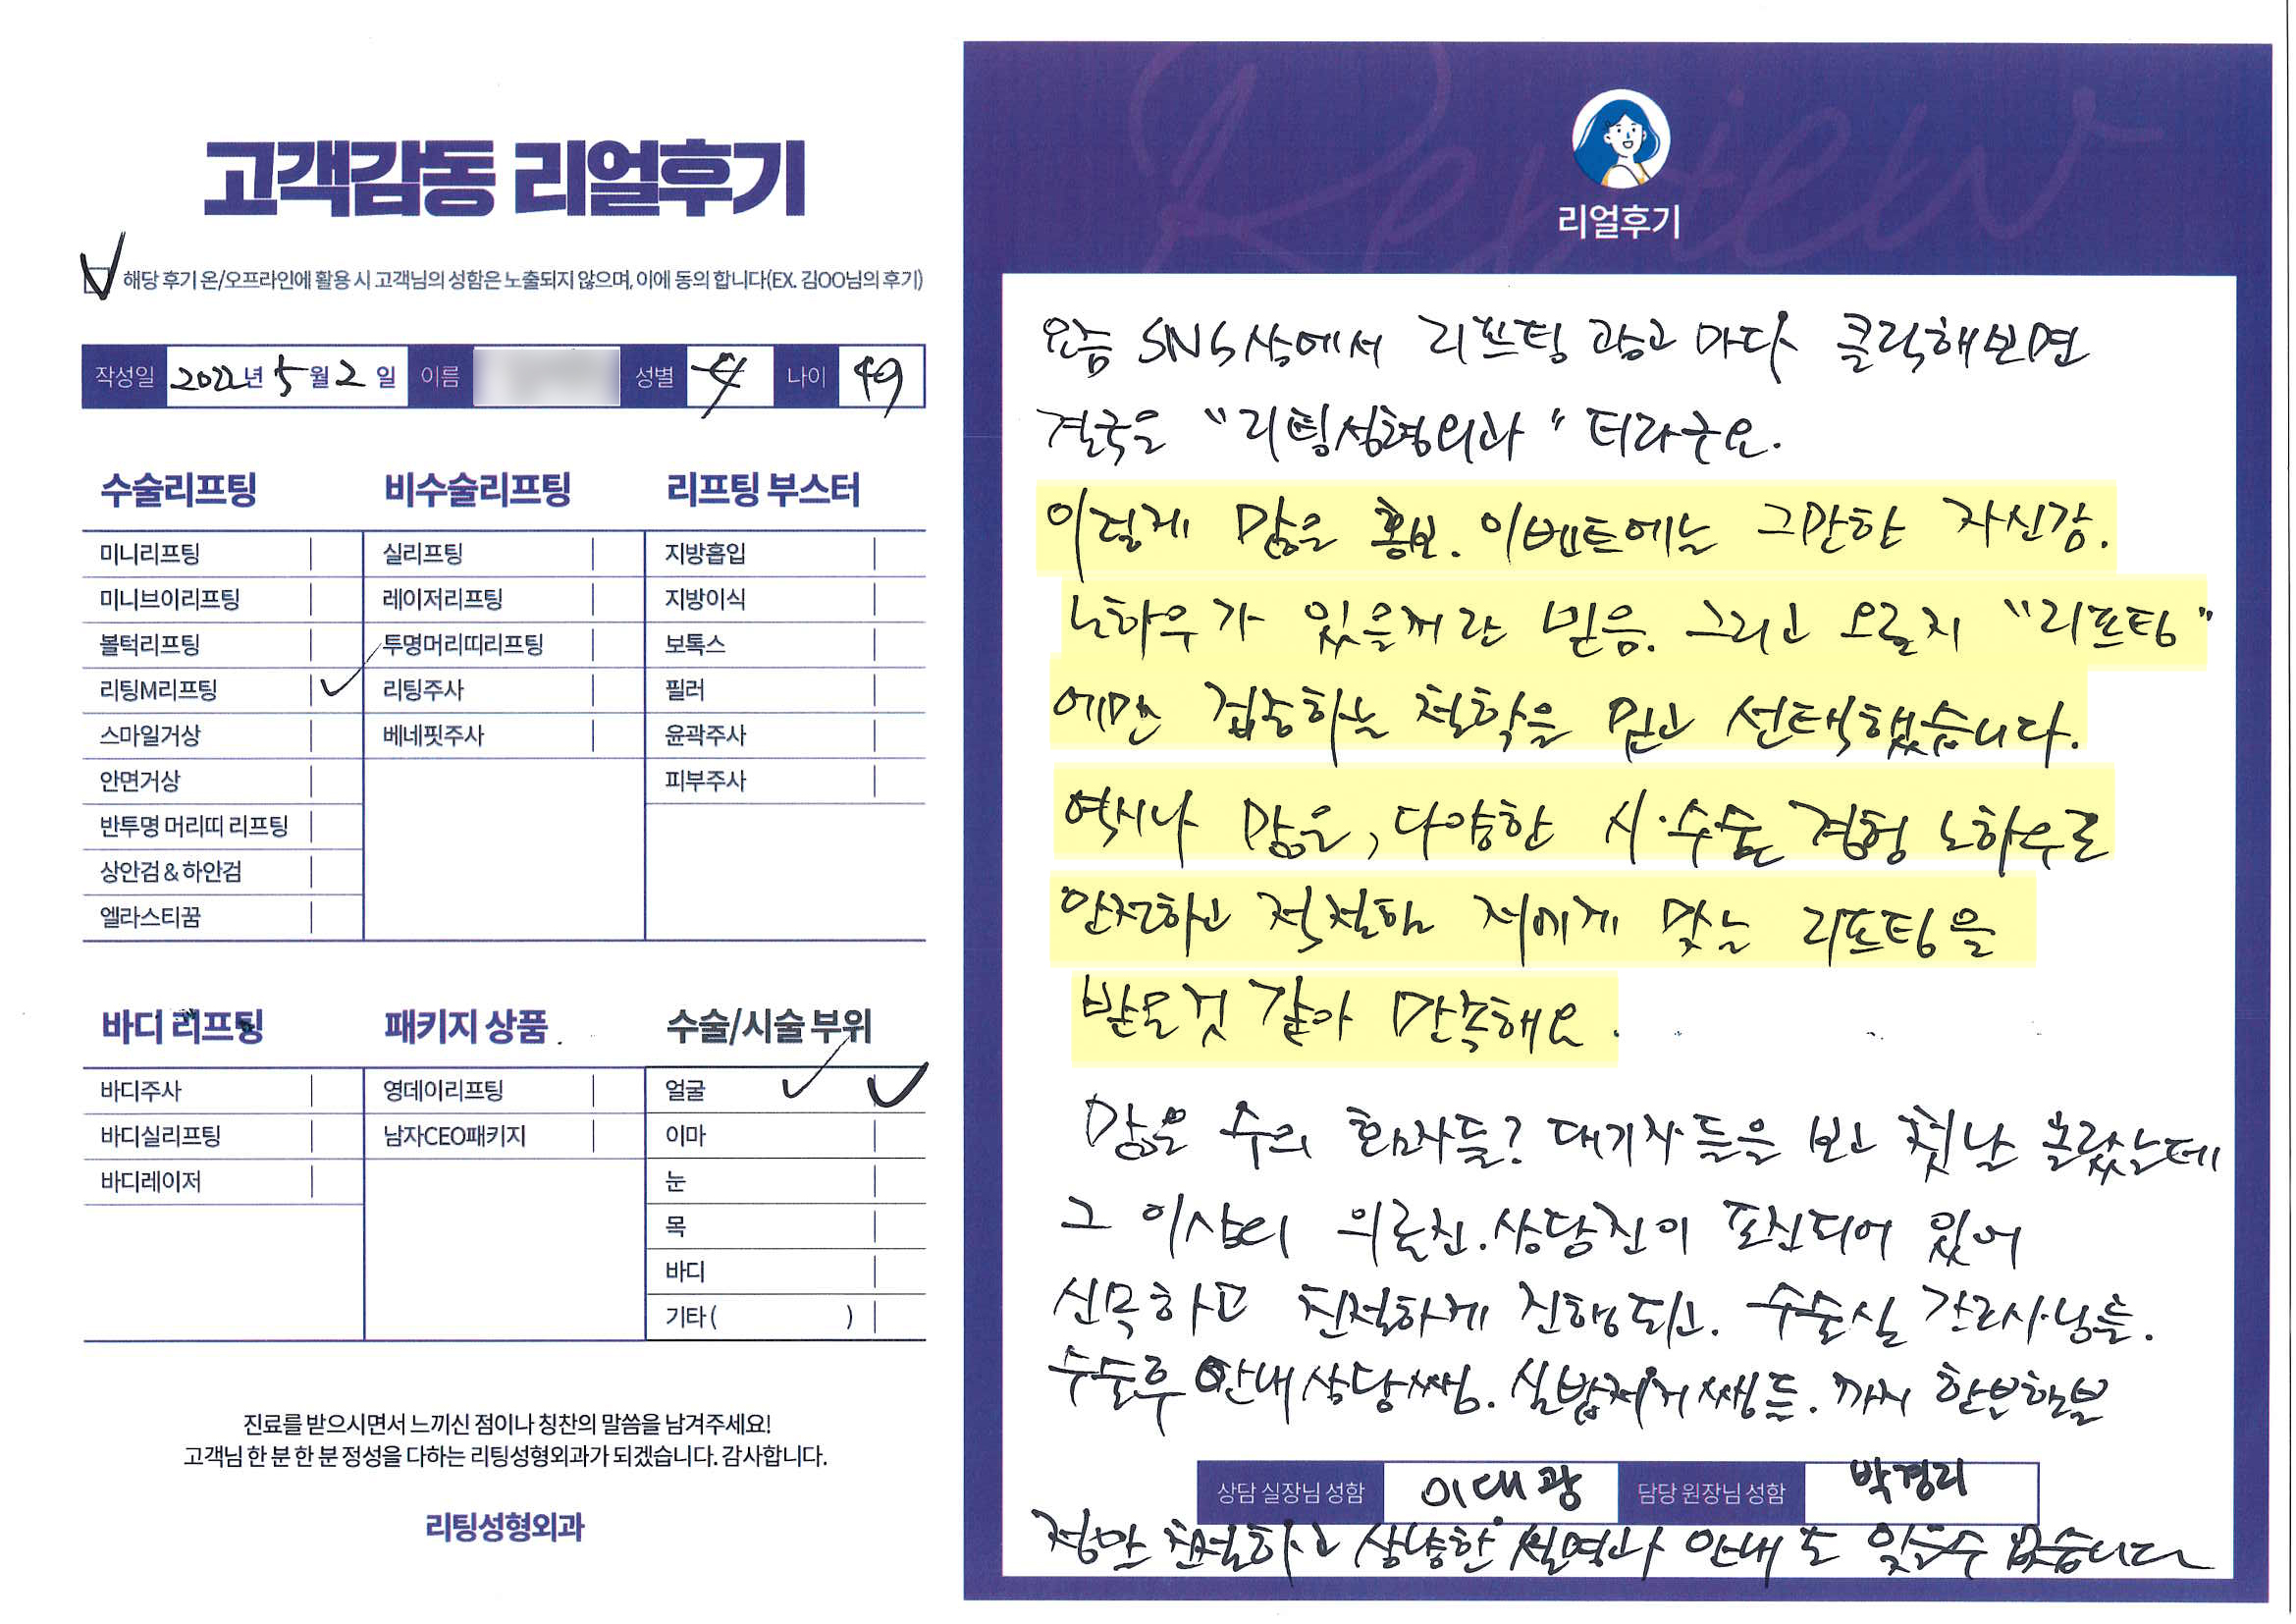 고객감동 리얼후기
해당 후기 온/오프라인에 활용 시 고객님의 성함은 노출되지 않으며, 이에 동의 합니다(EX. 김OO님의 후기)
작성일 2022년 5월 2일 이름 성별 女 나이 49
수술리프팅 비수술리프팅 리프팅 부스터
미니리프팅 실리프팅 지방흡입
미니브이리프팅 레이저리프팅 지방이식
볼턱리프팅 투명머리띠리프팅 보톡스
리팅M리프팅 리팅주사 필러
스마일거상 베네핏주사 윤곽주사
안면거상 피부주사
반투명 머리띠 리프팅
상안검 & 하안검
엘라스티꿈
바디 리프팅 패키지 상품 수술/시술 부위
바디주사 영데이리프팅 얼굴
바디실리프팅 남자CEO패키지 이마
바디레이저 눈
목
바디
기타 ( )
진료를 받으시면서 느끼신 점이나 칭찬의 말씀을 남겨주세요!
고객님 한 분 한 분 정성을 다하는 리팅성형외과가 되겠습니다. 감사합니다.
리팅성형외과
Review
리얼후기
요즘 SNS상에서 리프팅 광고마다 클릭해보면
결국은 "리팅성형외과" 더라구요.
이렇게 많은 홍보. 이벤트에는 그만한 자신감.
노하우가 있을꺼란 믿음. 그리고 오로지 "리프팅"
에만 집중하는 철학을 믿고 선택했습니다.
역시나 많은, 다양한 시·수술 경험 노하우로
안전하고 적절한 저에게 맞는 리프팅을
받은것 같아 만족해요.
많은 수의 환자들? 대기자들을 보고 첫날 놀랐는데
그 이상의 의료진.상담진이 포진되어 있어
신속하고 친절하게 진행되고. 수술실 간호사님들.
수술후 안내상담쌤. 실밥제거쌤들. 까지 한분한분
상담 실장님 성함 이대광 담당 원장님 성함 박경리
정말 친절하고 상냥한 설명과 안내도 잊을수 없습니다